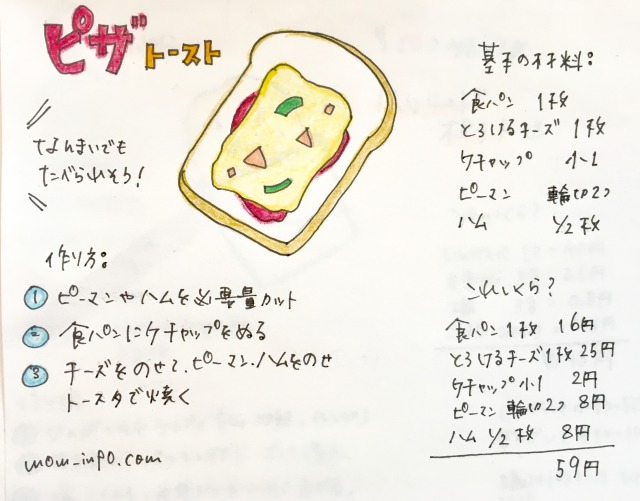 ピザ トースト
なんまいでも
たべられそう!
基本の材料:
食パン 1枚
とろけるチーズ 1枚
ケチャップ 小1
ピーマン 輪切り2つ
ハム 1/2枚
作り方:
① ピーマンやハムを必要量カット
② 食パンにケチャップをぬる
③ チーズをのせて、ピーマン、ハムをのせ
トースタで焼く
これいくら?
食パン 1枚 16円
とろけるチーズ 1枚 25円
ケチャップ 小1 2円
ピーマン 輪切り2つ 8円
ハム 1/2枚 8円
59円
mom-info.com